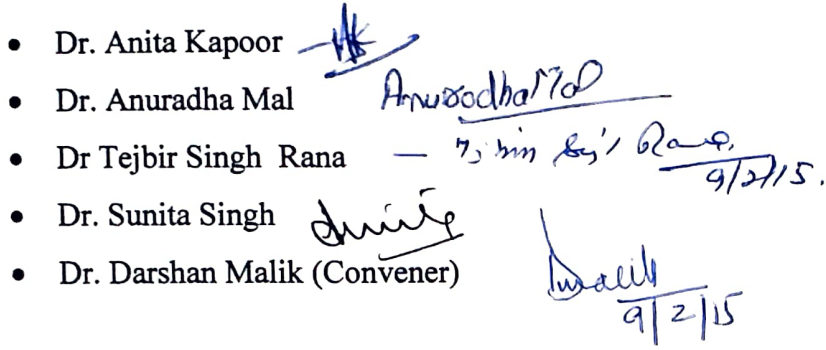 • Dr. Anita Kapoor –
• Dr. Anuradha Mal AnuradhaMal
• Dr Tejbir Singh Rana – Rana
9/2/15.
• Dr. Sunita Singh Sunita
• Dr. Darshan Malik (Convener) Dmalik
9/2/15